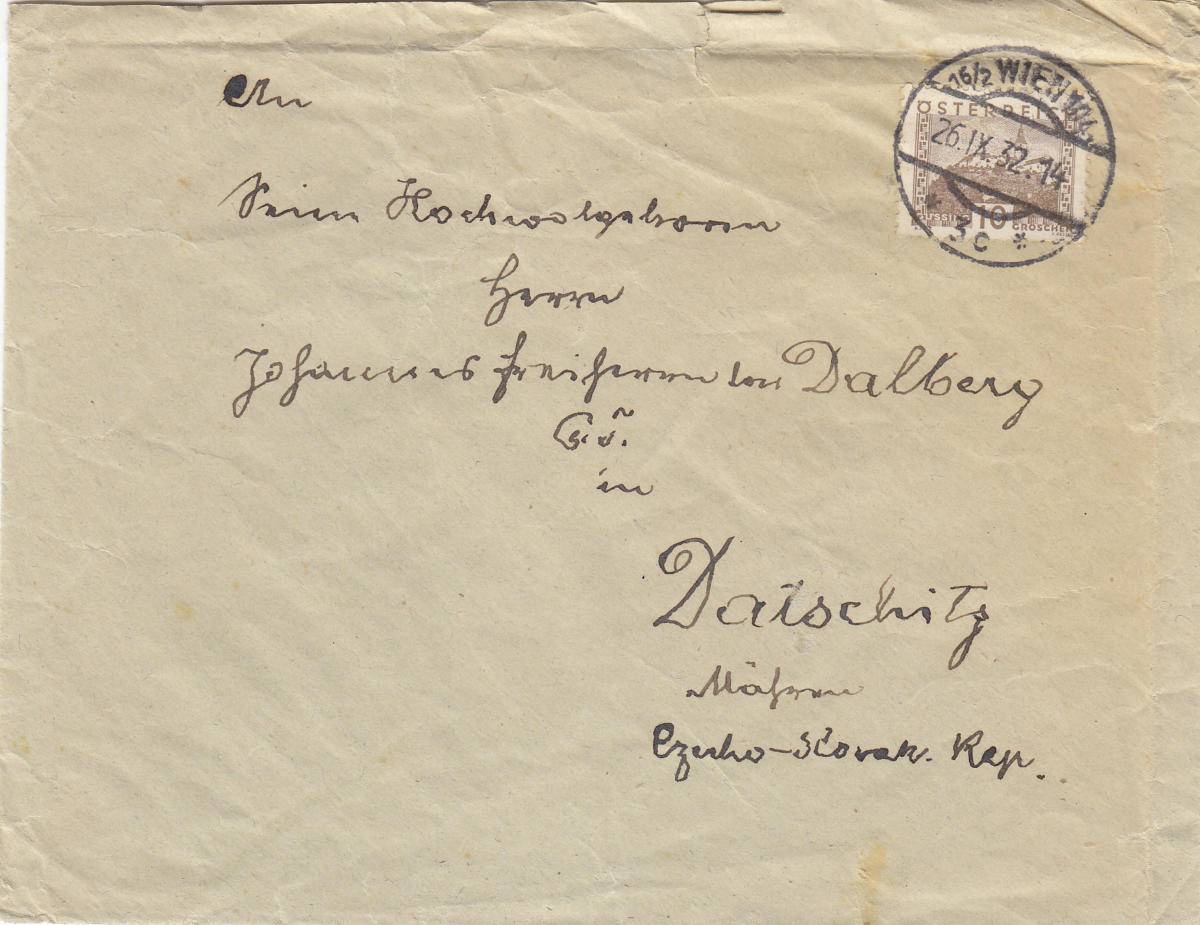 16/2 WIEN 101
26.IX.32.14
* 3c *
ÖSTERREICH
10
GROSCHEN
An
Seine Hochwolgeboren
Herrn
Johannes Freiherrn von Dalberg
in
Datschitz
Mähren
Czecho-Slovak. Rep.